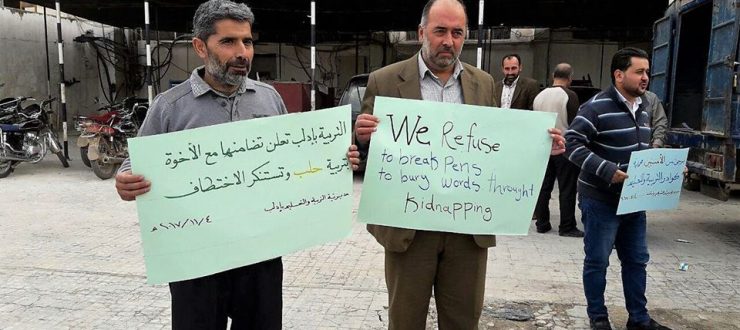 التربية بإدلب تعلن تضامنها مع الأخوة
بتربية حلب وتستنكر الاختطاف
مديرية التربية والتعليم بإدلب
٢٠١٧/١١/٤م
We Refuse
to break Pens
to bury words throught
Kidnapping
كوادر التربية والتعليم